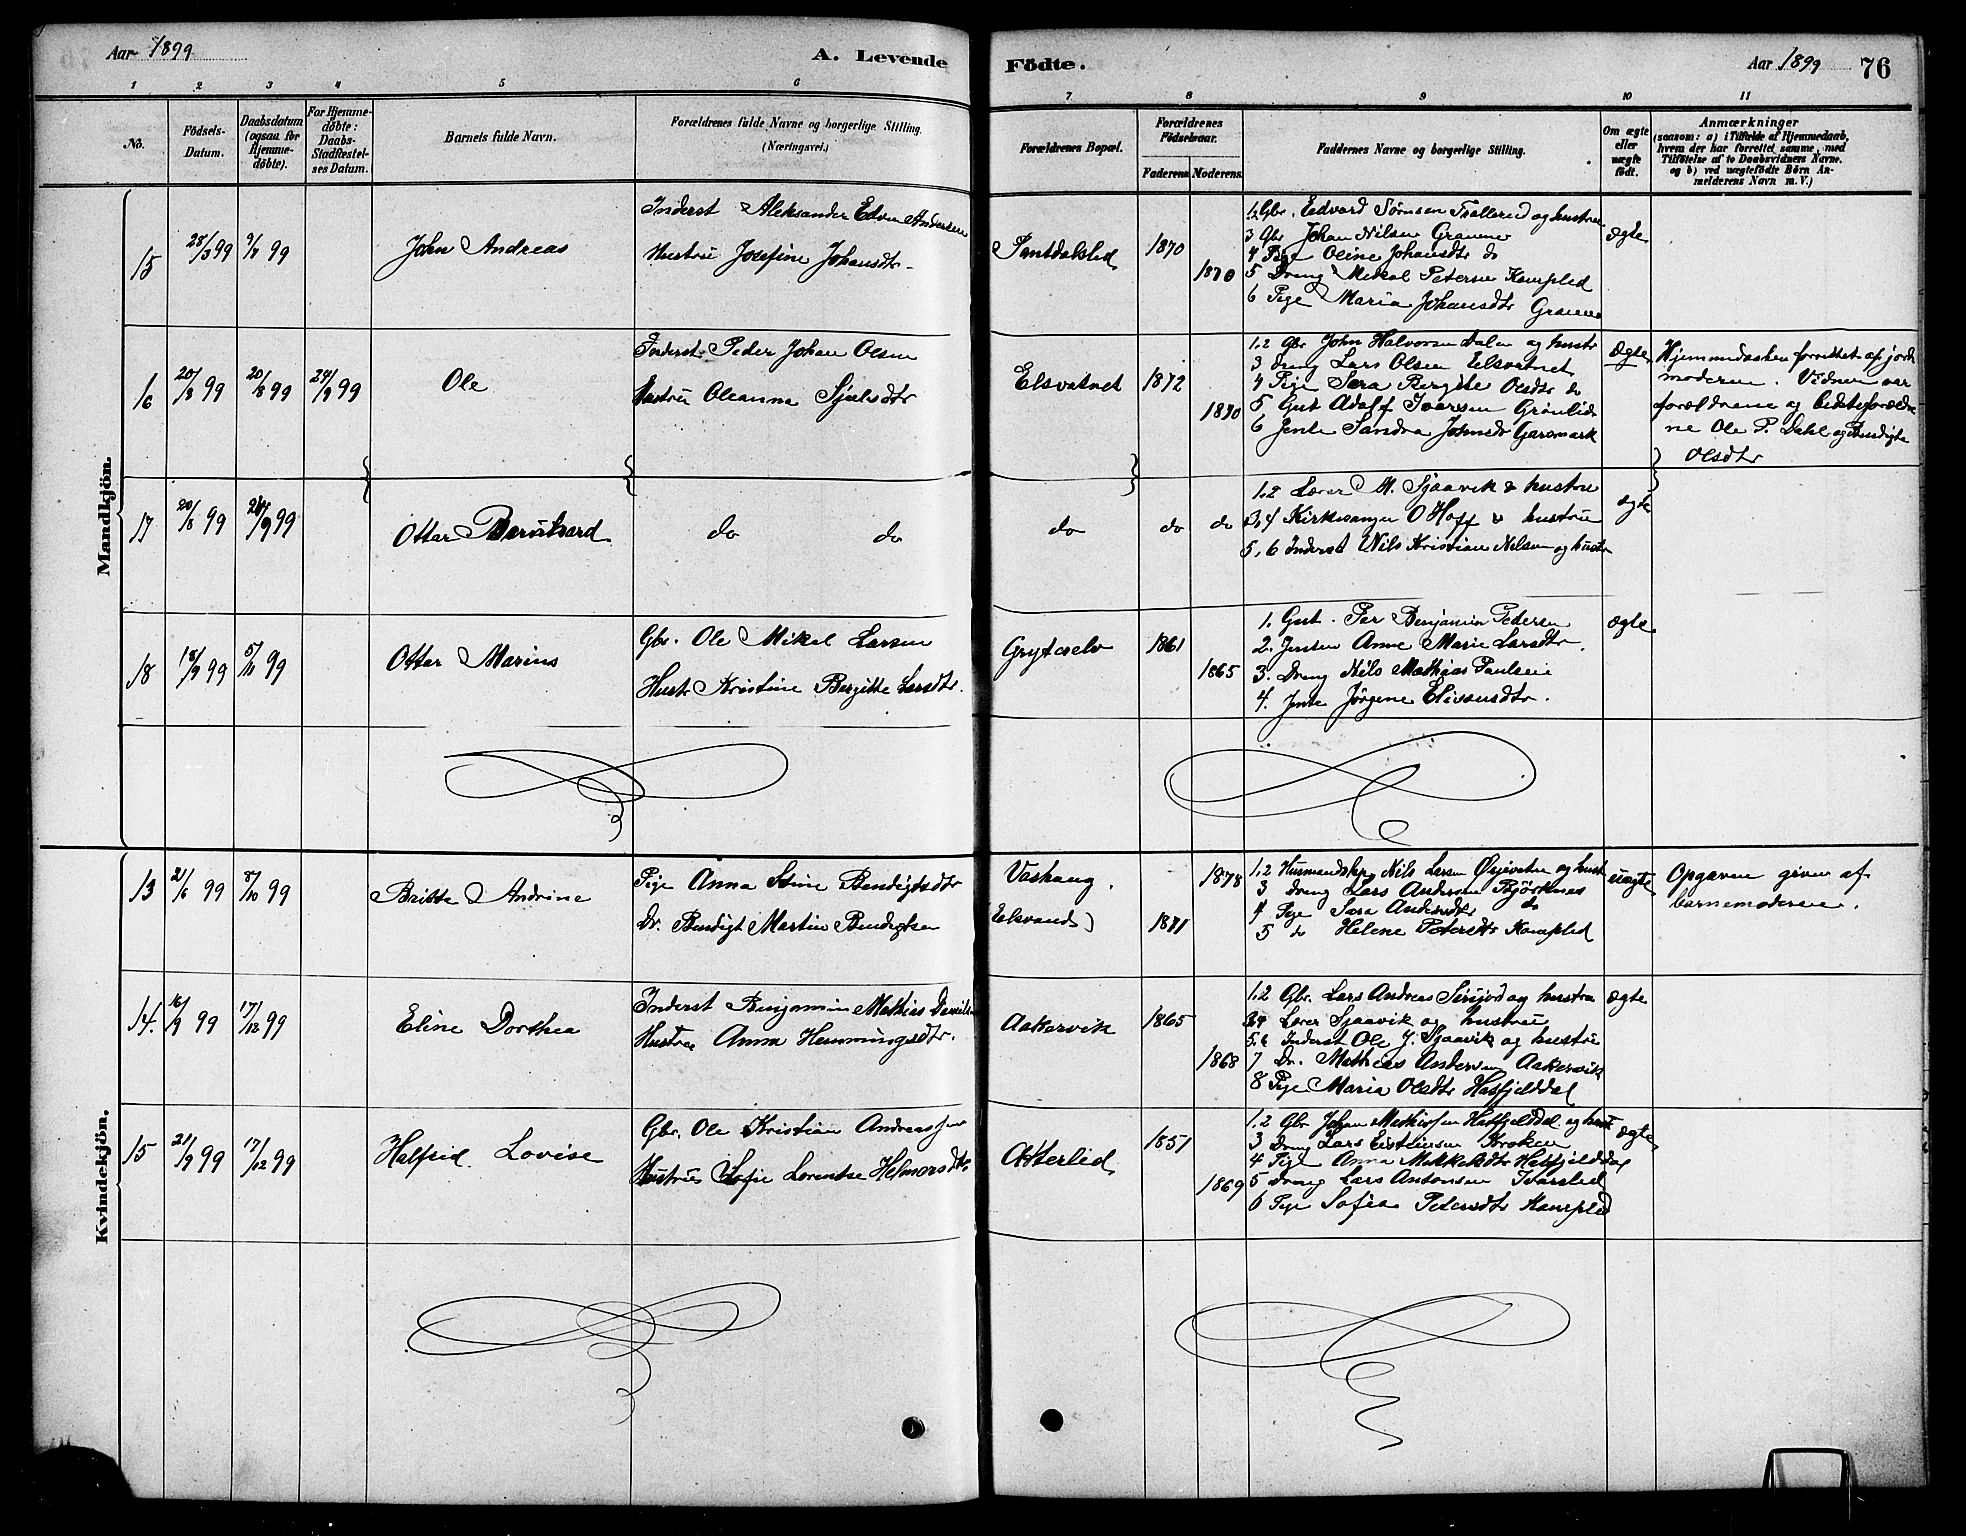 Aar 1899
A. Levende Födte.
Aar 1899
76
1 2 3 4 5 6 7 8 9 10 11
No.
Födsels-Datum.
Daabsdatum (ogsaa for Hjemme-døbte).
For Hjemme-døbte: Daabs-Stadfæstel-ses Datum.
Barnets fulde Navn.
Forældrenes fulde Navne og borgerlige Stilling.
(Næringsvei.)
Forældrenes Bopæl.
Forældrenes Födselsaar.
Faderens Moderens
Faddernes Navne og borgerlige Stilling.
Om ægte eller uægte født.
Anmærkninger
(saasom: a) i Tilfælde af Hjemmedaab,
hvem der har forrettet samme, med
Tilföielse af to Daabsvidners Navne.
og b) ved uægtefødte Börn An-
melderens Navn m. V.)
Mandkjön.
15 25/3 99 9/7 99
John Andreas
Inderst Aleksander Edvin Andersen
Hustru Josefine Johansdtr
1870
1870
1/2 Gbr. Edvard Sørnsen og hustru
3 Gbr Johan Nilsen
4 Pige Oline Johansdtr do
5 Dreng Mikal Petersen Kampled
6 Pige Maria Johansdtr
ægte
16 20/8 99 20/8 99 24/9 99
Ole
Inderst Peder Johan Olsen
Hustru Oleanna Sjulsdtr
Elsvatnet
1872
1870
1,2 Gbr John Halvorsen Dalen og hustr
3 Dreng Lars Olsen Elsvatnet
4 Pige Sara Bergite Olsdtr do
5 Gut Adolf Ivarsen Grönlid
6 Jente Sandra Johnsdr Garsmark
Ægte
Hjemmedaaben forrettet af jord
moderen. Vidner var
forældrene og bedsteforældre
ne Ole P. Dahl og Bendigte
Olsdtr
17 20/8 99 24/9 99
Ottar Bernhard
do do
do
do do
1,2 Lærer M. Sjaavik & hustru
3,4 Kirkesanger O Hoff & hustru
5,6 Inderst Nils Kristian Nilsen og hustr
ægte
18 18/9 99 5/11 99
Ottar Marius
Gbr. Ole Mikal Larsen
Hustr Kristine Bergitte Larsdtr.
Grytselv
1861
1865
1. Gut. Per Benjamin Pedersen
2. Jenten Anne Marie Larsdtr.
3. Dreng Nils Mathias Paulsen
4. Jente Jørgine Elivsensdtr.
ægte
Kvindekjön.
13 21/6 99 8/10 99
Britta Andrine
Pige Anna Stine Bendigtsdtr
Dr. Bendigt Martin Bendigtsen
Vashaug.
(Elsvand)
1878
1871
1,2 Husmandskg Nils Larsen og hust
3 Dreng Lars Andersen Björknes
4 Pige Sara Andersdtr do
5 do Helene Petersdtr Kampled
uægte
Opgaven given af
barnemoderen.
14. 16/9 99 17/12 99
Eline Dorthea
Inderst Benjamin Mathias Danielsen
Hustru Anna Hemmingsdtr.
Aakervik
1865
1868
1,2 Gbr. Lars Andreas Sirijord og hustru
3,4 Lærer Sjaavik og hustru
5,6 Inderst Ole J. Sjaavik og hustru
7 Dr. Mathias Andersen Aakervik
8 Pige Maria Olsdtr Hatfjelddal
ægte
15 21/9 99 17/12 99
Halfrid Lovise
Gbr. Ole Kristian Andreassen
Hustru Sofie Lorentse Helmersdtr
Atterlid
1851
1869
1,2 Gbr Johan Mathissen Hatfjelddal og hust
3 Dreng Lars Kroken
4 Pige Anna Mikkelsdtr Hatfjelddal
5 Dreng Lars Antonsen Ivarslid
6 Pige Sofia Petersdtr Kampled
ægte